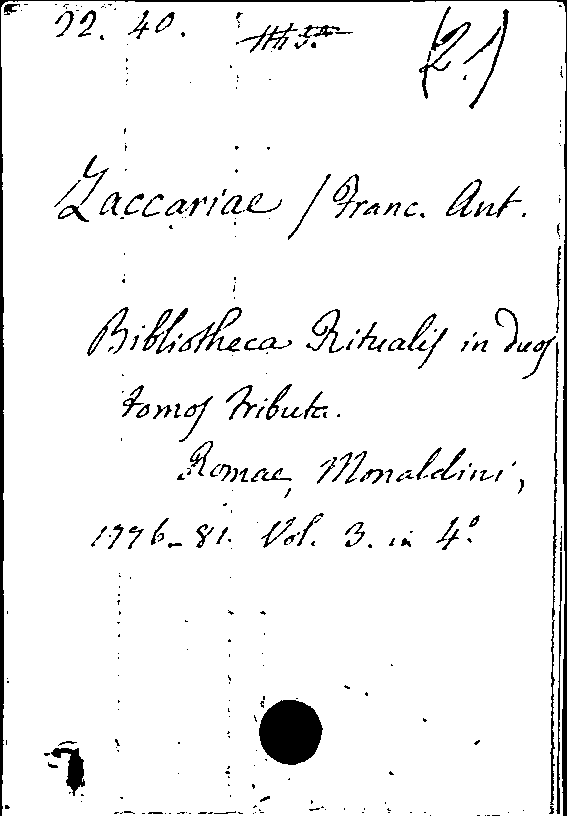 22. 40. (2.)
Zaccariae / Franc. Ant.
Bibliotheca Ritualis in duos
tomos tributa.
Romae, Monaldini,
1776-81. Vol. 3. in 4º